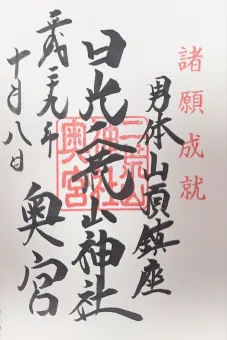 諸願成就
男体山頂鎮座
日光二荒山神社
奥宮
二荒山神社奥宮
平成二九年
十月八日